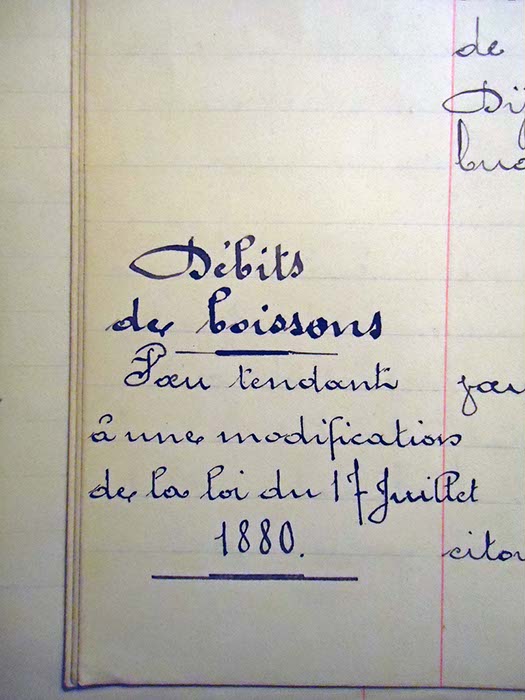 de
Dij
bud
Débits
de boissons
Vœu tendant
à une modification
de la loi du 17 Juillet
1880.
cito